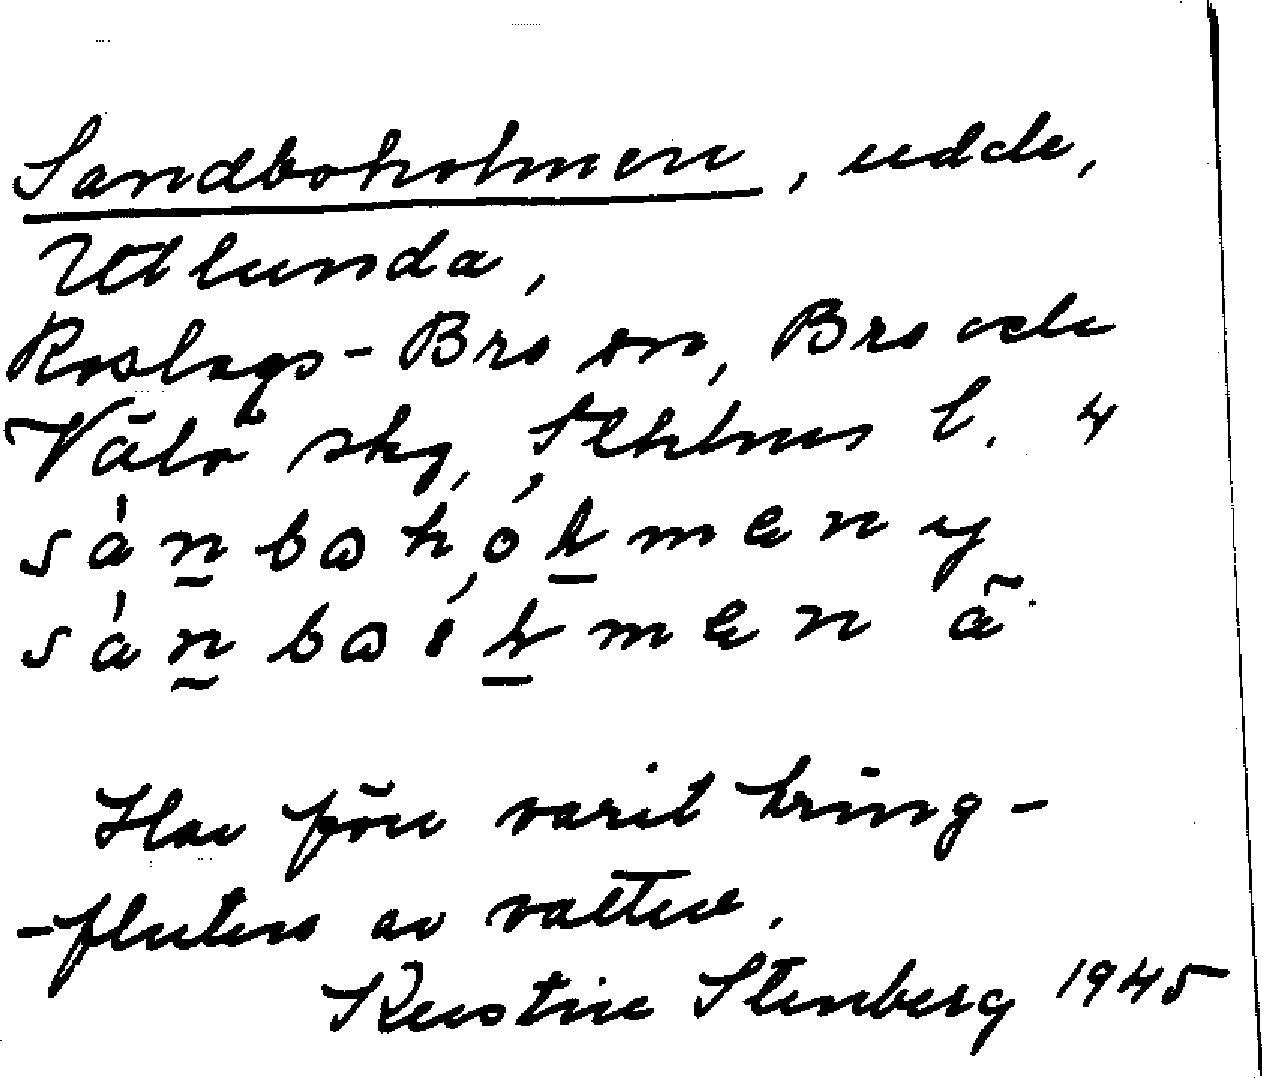 Sandboholmen, udde,
Utlunda,
Roslags-Bro sn, Bro och
Väto skg, Sthlms l. 4
sán̰baho̱lmen y
sán̰baólmen ã
Har förr varit kring-
-fluten av vattne.
Kerstin Stenberg 1945